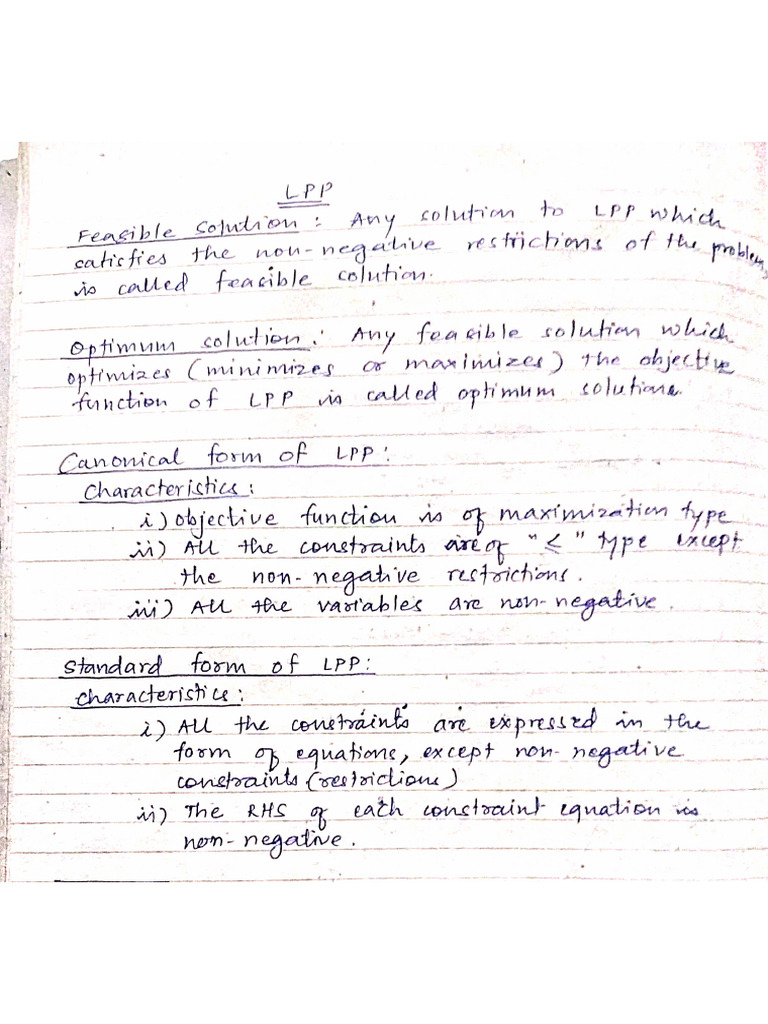 LPP
Feasible Solution : Any solution to LPP which
satisfies the non-negative restrictions of the problem,
is called feasible solution.
Optimum solution : Any feasible solution which
optimizes (minimizes or maximizes) the objective
function of LPP is called optimum solutions.
Canonical form of LPP :
Characteristics :
i) Objective function is of maximization type
ii) All the constraints are of "≤" type except
the non-negative restrictions.
iii) All the variables are non-negative.
Standard form of LPP :
Characteristics :
i) All the constraints are expressed in the
form of equations, except non-negative
constraints (restrictions)
ii) The RHS of each constraint equation is
non-negative.